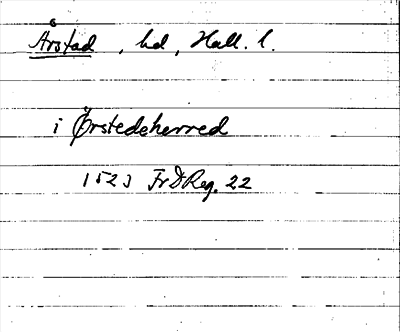 Årstad, hd, Hall. l.
i Ørstedeherred
1523 FrDReg. 22